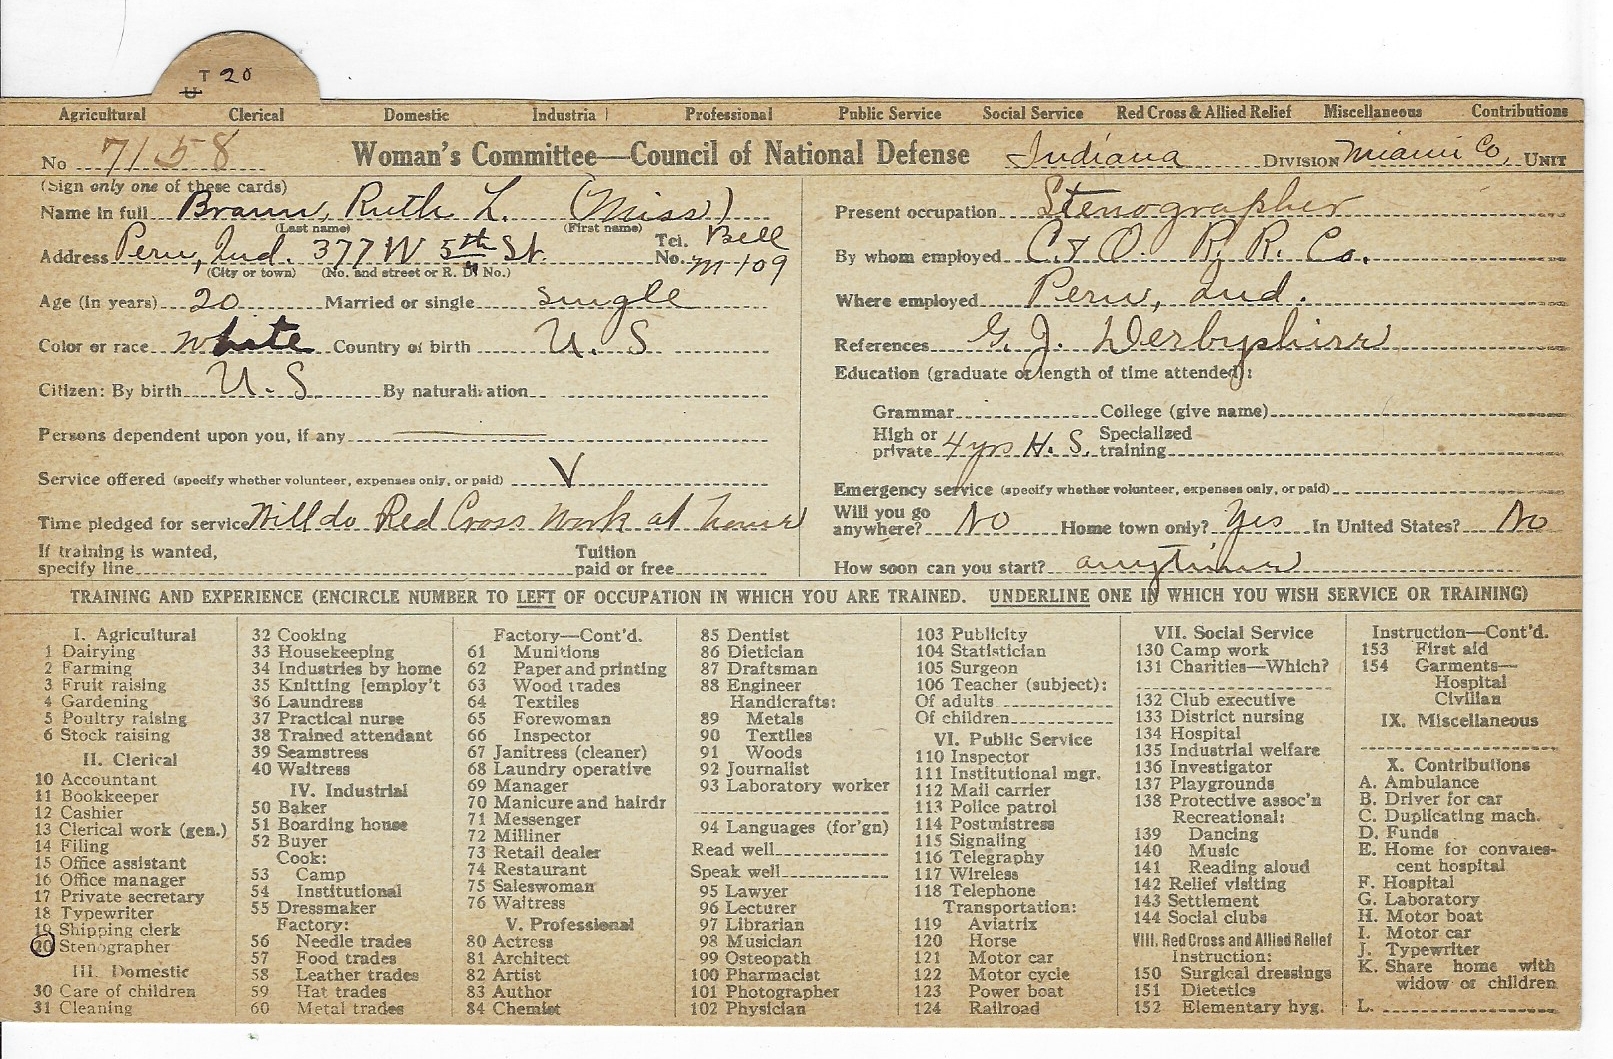 T 20
U
Agricultural Clerical Domestic Industrial Professional Public Service Social Service Red Cross & Allied Relief Miscellaneous Contributions
No 7158 Woman's Committee—Council of National Defense Indiana DIVISION Miami Co. UNIT
(Sign only one of these cards)
Name in full Braun, Ruth L. (Miss)
(Last name) (First name)
Address Peru, Ind. 377 W 5th St. Tel. No. Bell M-109
(City or town) (No. and street or R. D. No.)
Age (in years) 20 Married or single single
Color or race white Country of birth U. S
Citizen: By birth U. S By naturalization
Persons dependent upon you, if any
Service offered (specify whether volunteer, expenses only, or paid) V
Time pledged for service Will do Red Cross Work at home
If training is wanted, specify line Tuition paid or free
Present occupation Stenographer
By whom employed C. & O. R. R. Co.
Where employed Peru, Ind.
References G. J. Derbyshire
Education (graduate or length of time attended):
Grammar College (give name)
High or private 4 yrs H. S. Specialized training
Emergency service (specify whether volunteer, expenses only, or paid)
Will you go anywhere? No Home town only? Yes In United States? No
How soon can you start? anytime
TRAINING AND EXPERIENCE (ENCIRCLE NUMBER TO LEFT OF OCCUPATION IN WHICH YOU ARE TRAINED. UNDERLINE ONE IN WHICH YOU WISH SERVICE OR TRAINING)
I. Agricultural
1 Dairying
2 Farming
3 Fruit raising
4 Gardening
5 Poultry raising
6 Stock raising
II. Clerical
10 Accountant
11 Bookkeeper
12 Cashier
13 Clerical work (gen.)
14 Filing
15 Office assistant
16 Office manager
17 Private secretary
18 Typewriter
19 Shipping clerk
20 Stenographer
III. Domestic
30 Care of children
31 Cleaning
32 Cooking
33 Housekeeping
34 Industries by home
35 Knitting [employ't
36 Laundress
37 Practical nurse
38 Trained attendant
39 Seamstress
40 Waitress
IV. Industrial
50 Baker
51 Boarding house
52 Buyer
Cook:
53 Camp
54 Institutional
55 Dressmaker
Factory:
56 Needle trades
57 Food trades
58 Leather trades
59 Hat trades
60 Metal trades
Factory—Cont'd.
61 Munitions
62 Paper and printing
63 Wood trades
64 Textiles
65 Forewoman
66 Inspector
67 Janitress (cleaner)
68 Laundry operative
69 Manager
70 Manicure and hairdr
71 Messenger
72 Milliner
73 Retail dealer
74 Restaurant
75 Saleswoman
76 Waitress
V. Professional
80 Actress
81 Architect
82 Artist
83 Author
84 Chemist
85 Dentist
86 Dietician
87 Draftsman
88 Engineer
Handicrafts:
89 Metals
90 Textiles
91 Woods
92 Journalist
93 Laboratory worker
94 Languages (for'gn)
Read well
Speak well
95 Lawyer
96 Lecturer
97 Librarian
98 Musician
99 Osteopath
100 Pharmacist
101 Photographer
102 Physician
103 Publicity
104 Statistician
105 Surgeon
106 Teacher (subject):
Of adults
Of children
VI. Public Service
110 Inspector
111 Institutional mgr.
112 Mail carrier
113 Police patrol
114 Postmistress
115 Signaling
116 Telegraphy
117 Wireless
118 Telephone
Transportation:
119 Aviatrix
120 Horse
121 Motor car
122 Motor cycle
123 Power boat
124 Railroad
VII. Social Service
130 Camp work
131 Charities—Which?
132 Club executive
133 District nursing
134 Hospital
135 Industrial welfare
136 Investigator
137 Playgrounds
138 Protective assoc'n
Recreational:
139 Dancing
140 Music
141 Reading aloud
142 Relief visiting
143 Settlement
144 Social clubs
VIII. Red Cross and Allied Relief
Instruction:
150 Surgical dressings
151 Dietetics
152 Elementary hyg.
Instruction—Cont'd.
153 First aid
154 Garments—
Hospital
Civilian
IX. Miscellaneous
X. Contributions
A. Ambulance
B. Driver for car
C. Duplicating mach.
D. Funds
E. Home for convales-
cent hospital
F. Hospital
G. Laboratory
H. Motor boat
I. Motor car
J. Typewriter
K. Share home with
widow or children
L.